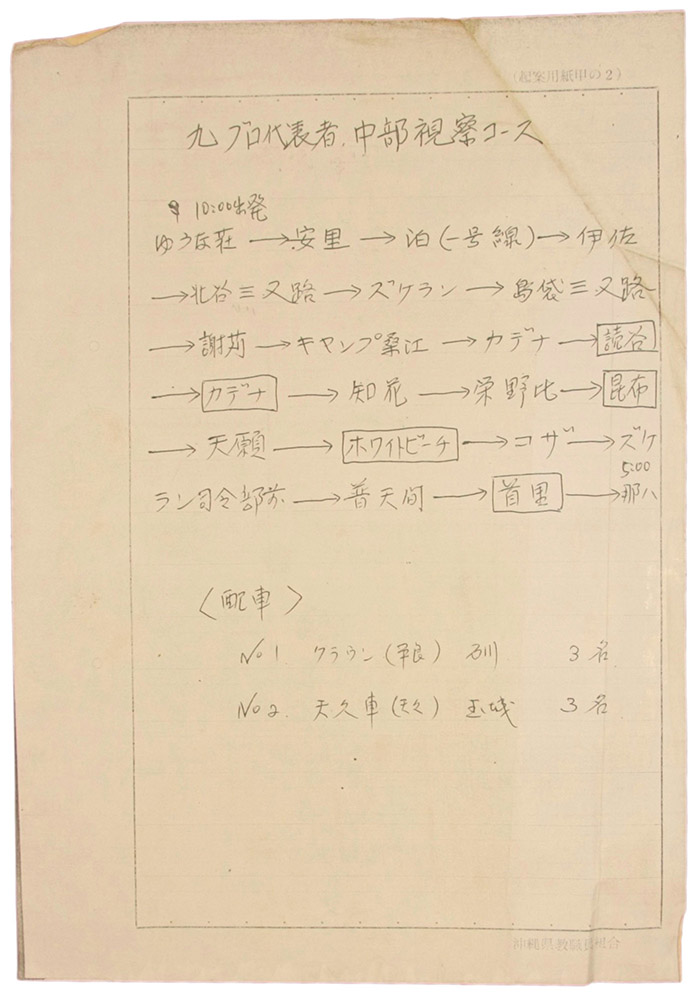 (起案用紙甲の2)
九ブロ代表者.中部視察コース
10:00出発
ゆうな荘→安里→泊(一号線)→伊佐
→北谷三叉路→ズケラン→島袋三叉路
→謝苅→キャンプ桑江→カデナ→読谷
→カデナ→知花→栄野比→昆布
→天願→ホワイトビーチ→コザ→ズケ
5:00
ラン司令部前→普天間→首里→那八
〈配車〉
No1 クラウン(平良) 石川 3名
No2. 天久車(天久) 玉城 3名
沖縄県教職員組合